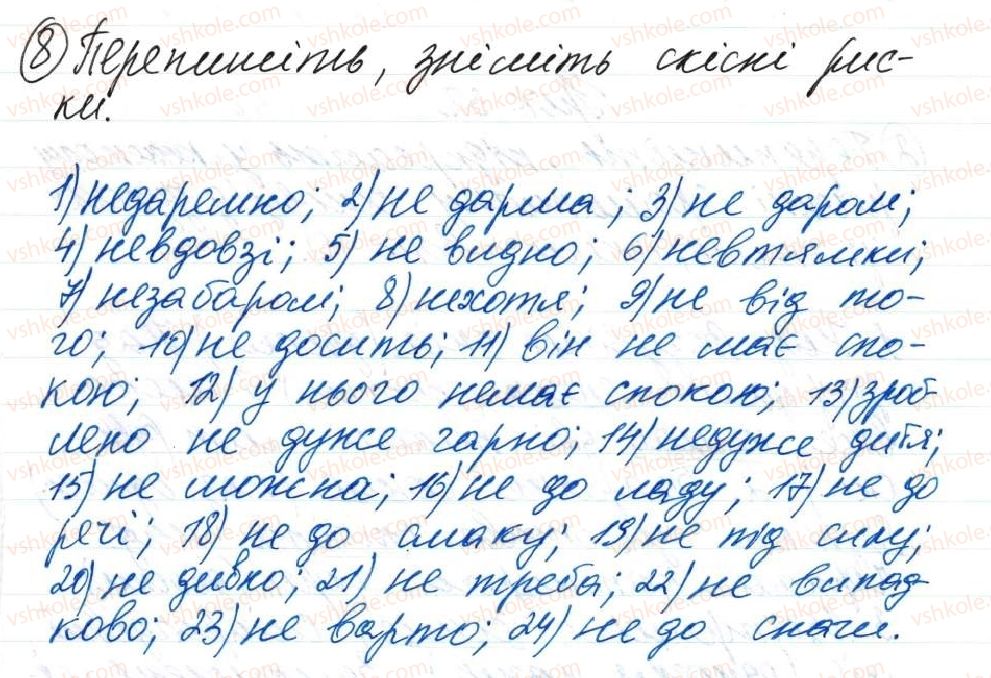 8 Перепишіть, зніміть скісні рис-
ки.
1) недаремно; 2) не дарма; 3) не даром;
4) невдовзі; 5) не видно; 6) невтямки;
7) незабаром; 8) нехотя; 9) не від то-
го; 10) не досить; 11) він не має спо-
кою; 12) у нього немає спокою; 13) зроб-
лено не дуже гарно; 14) недуже дитя;
15) не можна; 16) не до ладу; 17) не до
речі; 18) не до смаку; 19) не під силу;
20) не дивно; 21) не треба; 22) не випад-
ково; 23) не варто; 24) не до снаги.